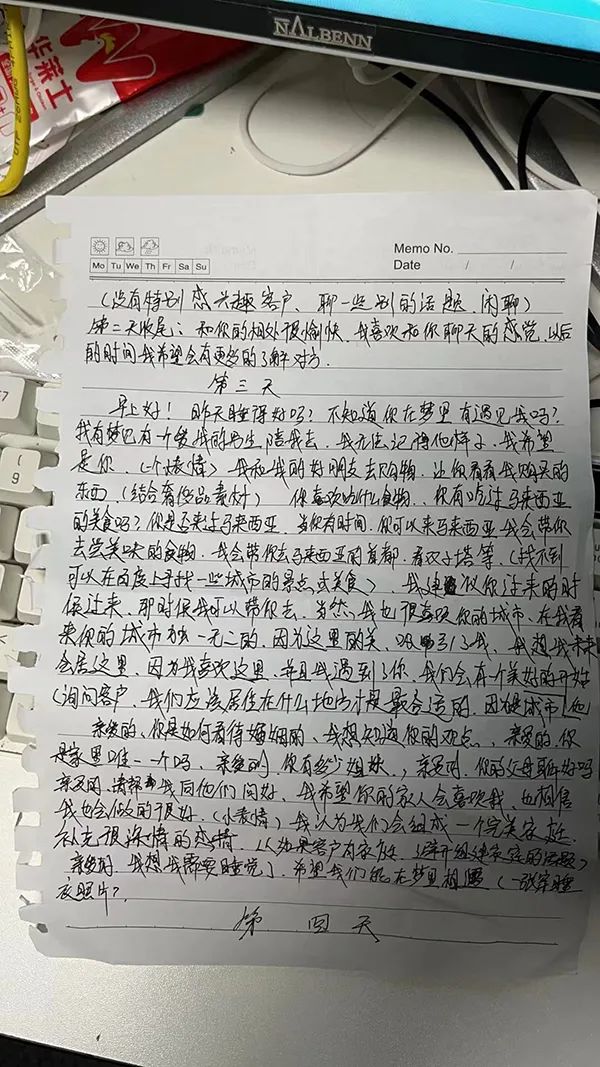 NALBENN
华莱士
Memo No.
Mo Tu We Th Fr Sa Su
Date / /
（没有特别感兴趣客户、聊一些别的话题、闲聊）
第二天收尾：和你的相处很愉快、我喜欢和你聊天的感觉、以后
的时间我希望会有更多的了解对方.
第三天
早上好！昨天睡得好吗？不知道你在梦里有遇见我吗？
我有梦见有一个 我的男生陪我去、我无法记得他样子、我希望
是你、（一个表情）我和我的好朋友去购物、让你看看我购买的
东西（结合奢侈品素材） 你喜欢吃什么食物、、你有吃过马来西亚
的美食吗？你是否来过马来西亚、当你有时间、你可以来马来西亚我会带你
去尝美味的食物、我会带你去马来西亚的首都、看双子塔等、（找不到
可以在百度上寻找一些城市的景点或美食）、我建议你过来的时
候过来、那时候我可以带你去、当然、我也很喜欢你的城市、在我看
来你的城市独一无二的、因为这里的美、吸引了我、我想我未来
会居这里、因为我喜欢这里、并且我遇到了你、我们会有一个美好的开始
（询问客户、我们应该居住在什么地方才是最合适的、因为是城市
亲爱的、你是如何看待婚姻的、我想知道你的观点、、亲爱的、你
是家里唯一一个吗、亲爱的、你有多少姐妹、，亲爱的、你的父母都好吗
亲爱的、请帮我同他们问好、我希望你的家人会喜欢我、也相信
我也会做的很好、（小表情）我认为我们会组成一个完美家庭、
补充很深情的感情、以 如果客户有家庭、避开组建家庭的话题）
亲爱的、我想我需要睡觉了、希望我们能在梦里相遇（一张穿睡
衣照片？
第四天